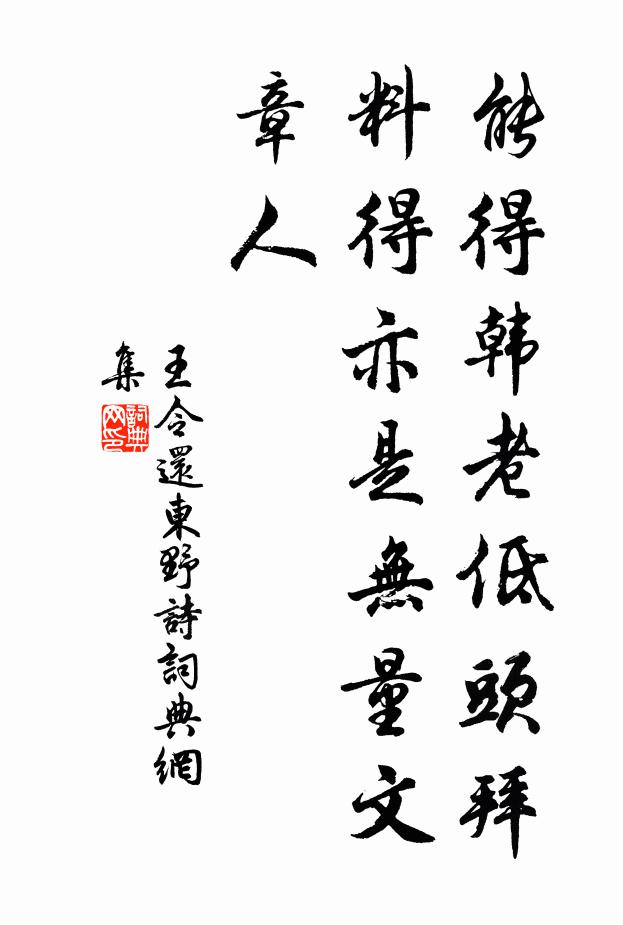 能得韩老低頭拜
料得亦是無量文
章人
王令還東野詩詞典網
集
詞典
网印